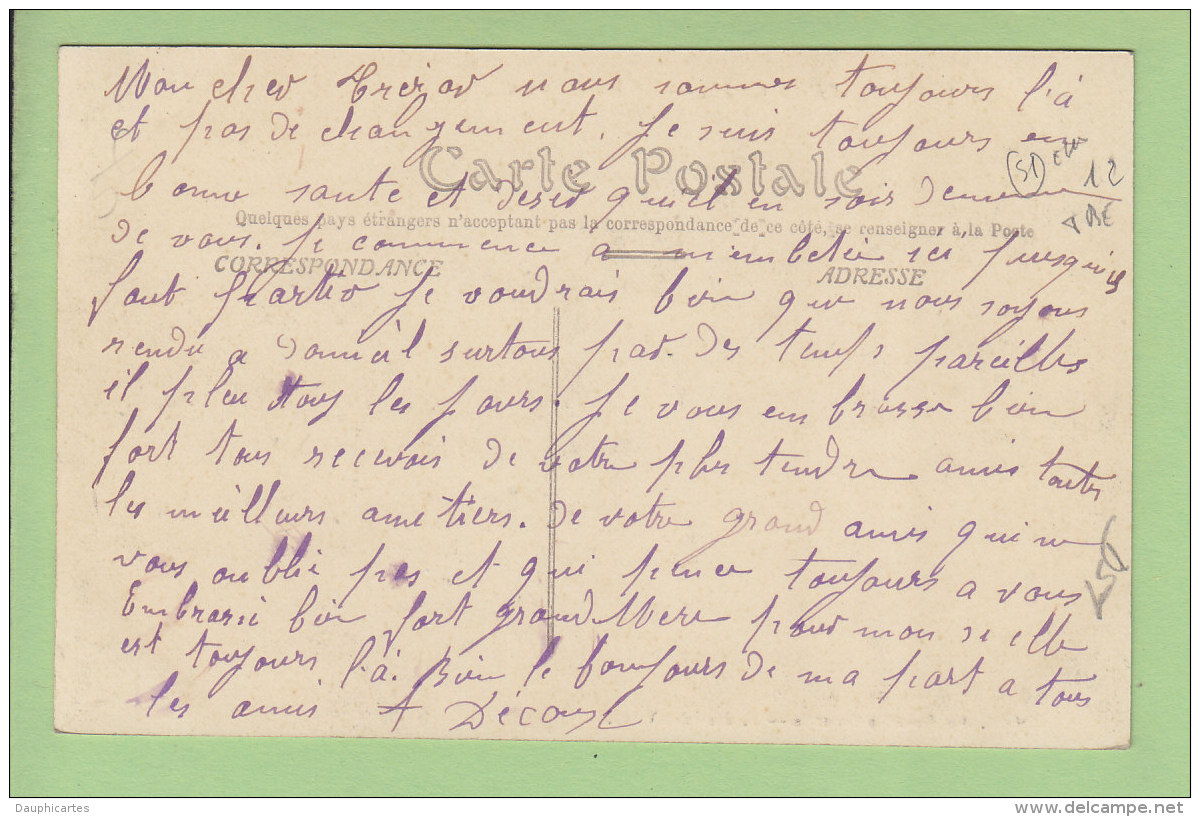 Mon cher Trésor nous sommes toujours l'à
et pas de changement. Je suis toujours en
Carte Postale
(51)
12
bonne sante et desir qu'il en soir deme
Quelques pays étrangers n'acceptent pas la correspondance de ce côté, se renseigner à la Poste
de vous. Je commence a m'embetée ici jusqu'ils
CORRESPONDANCE
ADRESSE
fout partir Je voudrais bien que nous soyons
rendu a surtous par des temps pareilles
il pleu tous les jours. Je vous embrasse bien
fort tous recevois de votre plus tendre amis toutes
les meilleurs ametiers. De votre grand amis qui ne
vous oublie pas et qui pence toujours a vous
Embrassé bien fort grand Mere pour mon si elle
est toujours l'à. Bien le bonjours de ma part a tous
les amis A Décous
Dauphicartes
delcampe.net